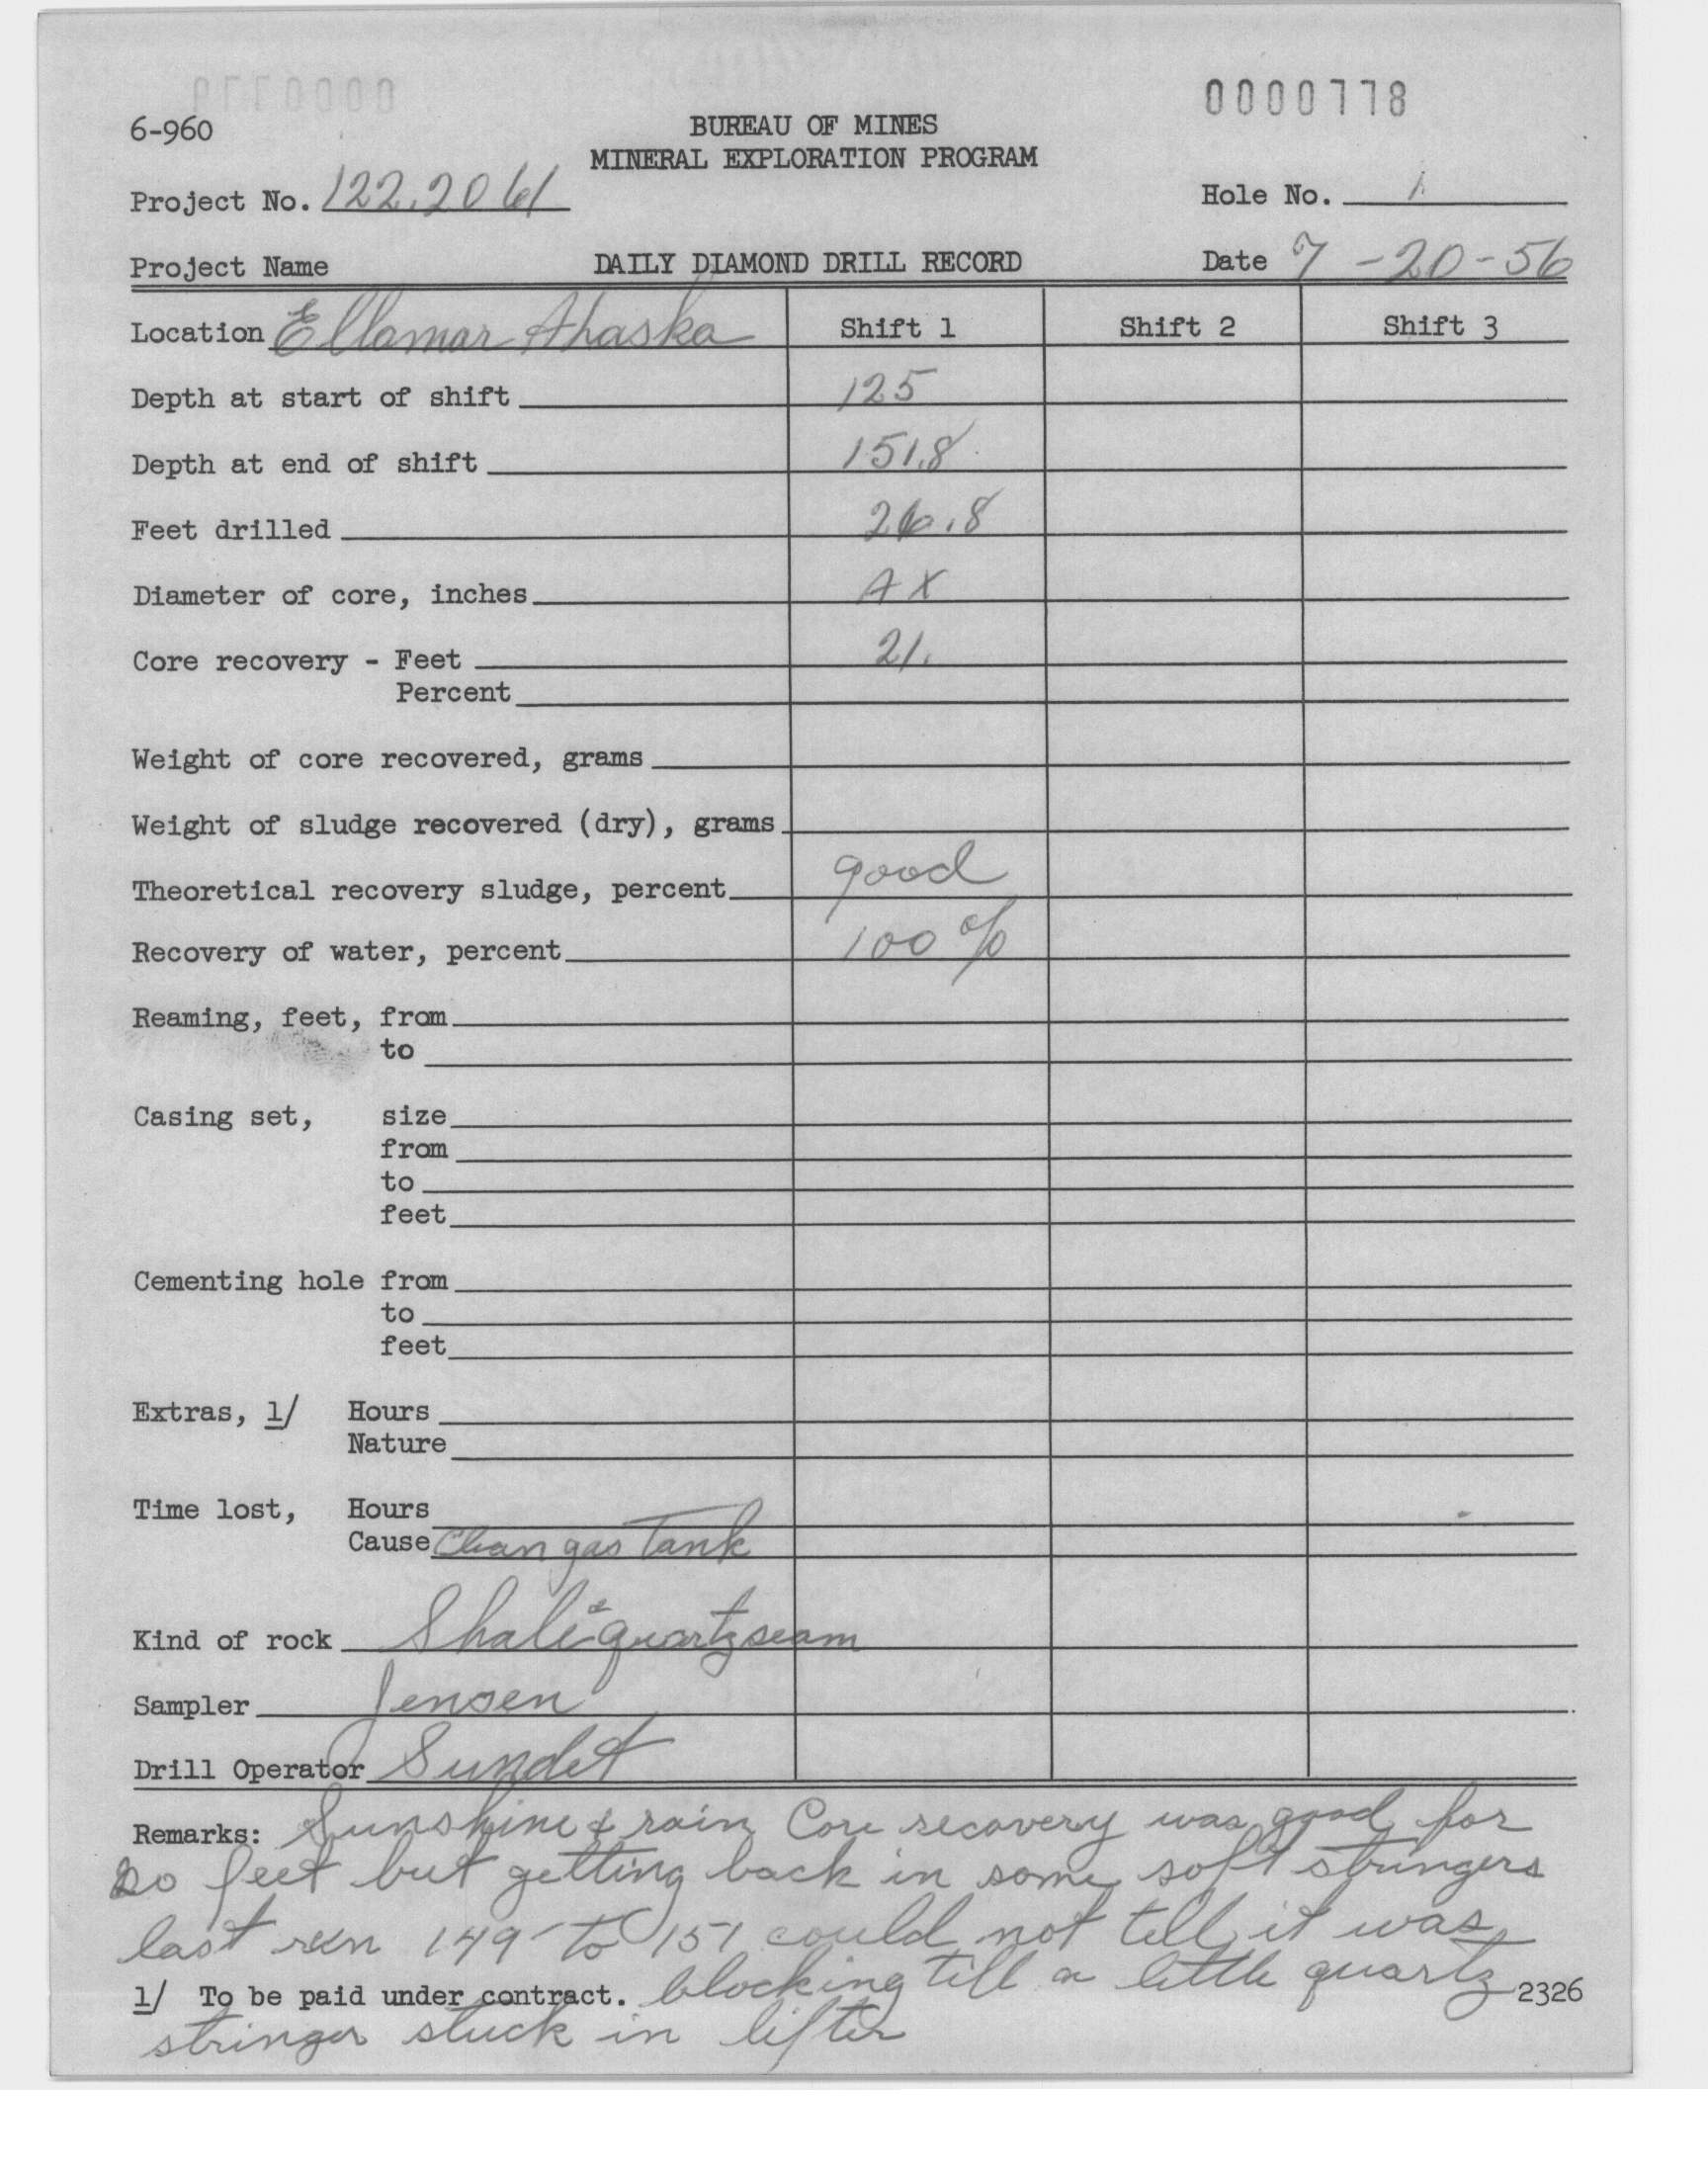 0000778
6-960
BUREAU OF MINES
MINERAL EXPLORATION PROGRAM
Project No. 122.2061
Hole No. 1
Project Name
DAILY DIAMOND DRILL RECORD
Date 7-20-56
Location Ellamar Ahaska Shift 1 Shift 2 Shift 3
Depth at start of shift 125
Depth at end of shift 151.8
Feet drilled 26.8
Diameter of core, inches AX
Core recovery - Feet 21.
Percent
Weight of core recovered, grams
Weight of sludge recovered (dry), grams
Theoretical recovery sludge, percent good
Recovery of water, percent 100%
Reaming, feet, from
to
Casing set, size
from
to
feet
Cementing hole from
to
feet
Extras, 1/ Hours
Nature
Time lost, Hours
Cause Clean gas Tank
Kind of rock Shale & quartz seam
Sampler Jensen
Drill Operator Sundet
Remarks: Sunshine & rain Core recovery was good for
20 feet but getting back in some soft stringers
last run 149 to 151 could not tell it was
1/ To be paid under contract. blocking till a little quartz 2326
stringer stuck in lifter